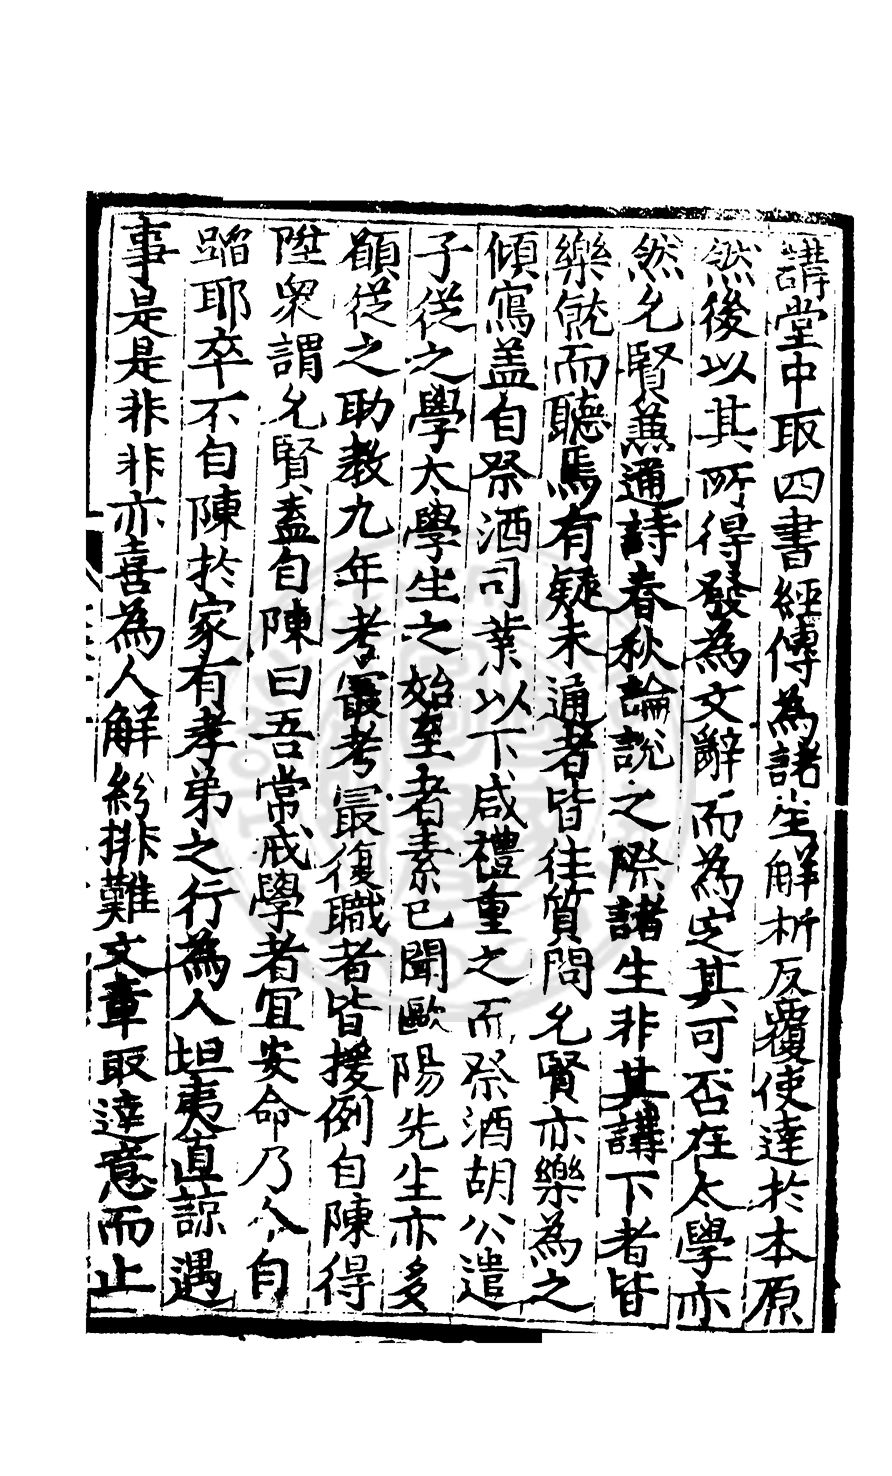 講堂中取四書經傳為諸生解析反覆使達於本原
然後以其所得發為文辭而為定其可否在太學亦
然允賢兼通詩春秋論說之際諸生非其講下者皆
樂就而聽焉有疑未通者皆往質問允賢亦樂為之
傾寫盖自祭酒司業以下咸禮重之而祭酒胡公遣
子從之學太學生之始至者素已聞歐陽先生亦多
願從之助教九年考最考最復職者皆援例自陳得
陞衆謂允賢盍自陳曰吾常戒學者宜安命乃今自
蹈耶卒不自陳於家有孝弟之行為人坦夷直諒遇
事是是非非亦喜為人解紛排難文章取達意而止